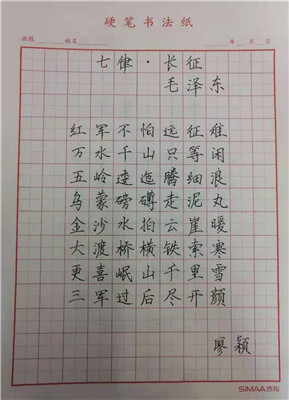 硬笔书法纸
班级 姓名 年 月 日
七律·长征
毛泽东
红军不怕远征难
万水千山只等闲
五岭逶迤腾细浪
乌蒙磅礴走泥丸
金沙水拍云崖暖
大渡桥横铁索寒
更喜岷山千里雪
三军过后尽开颜
廖颖
SIMAA西玛